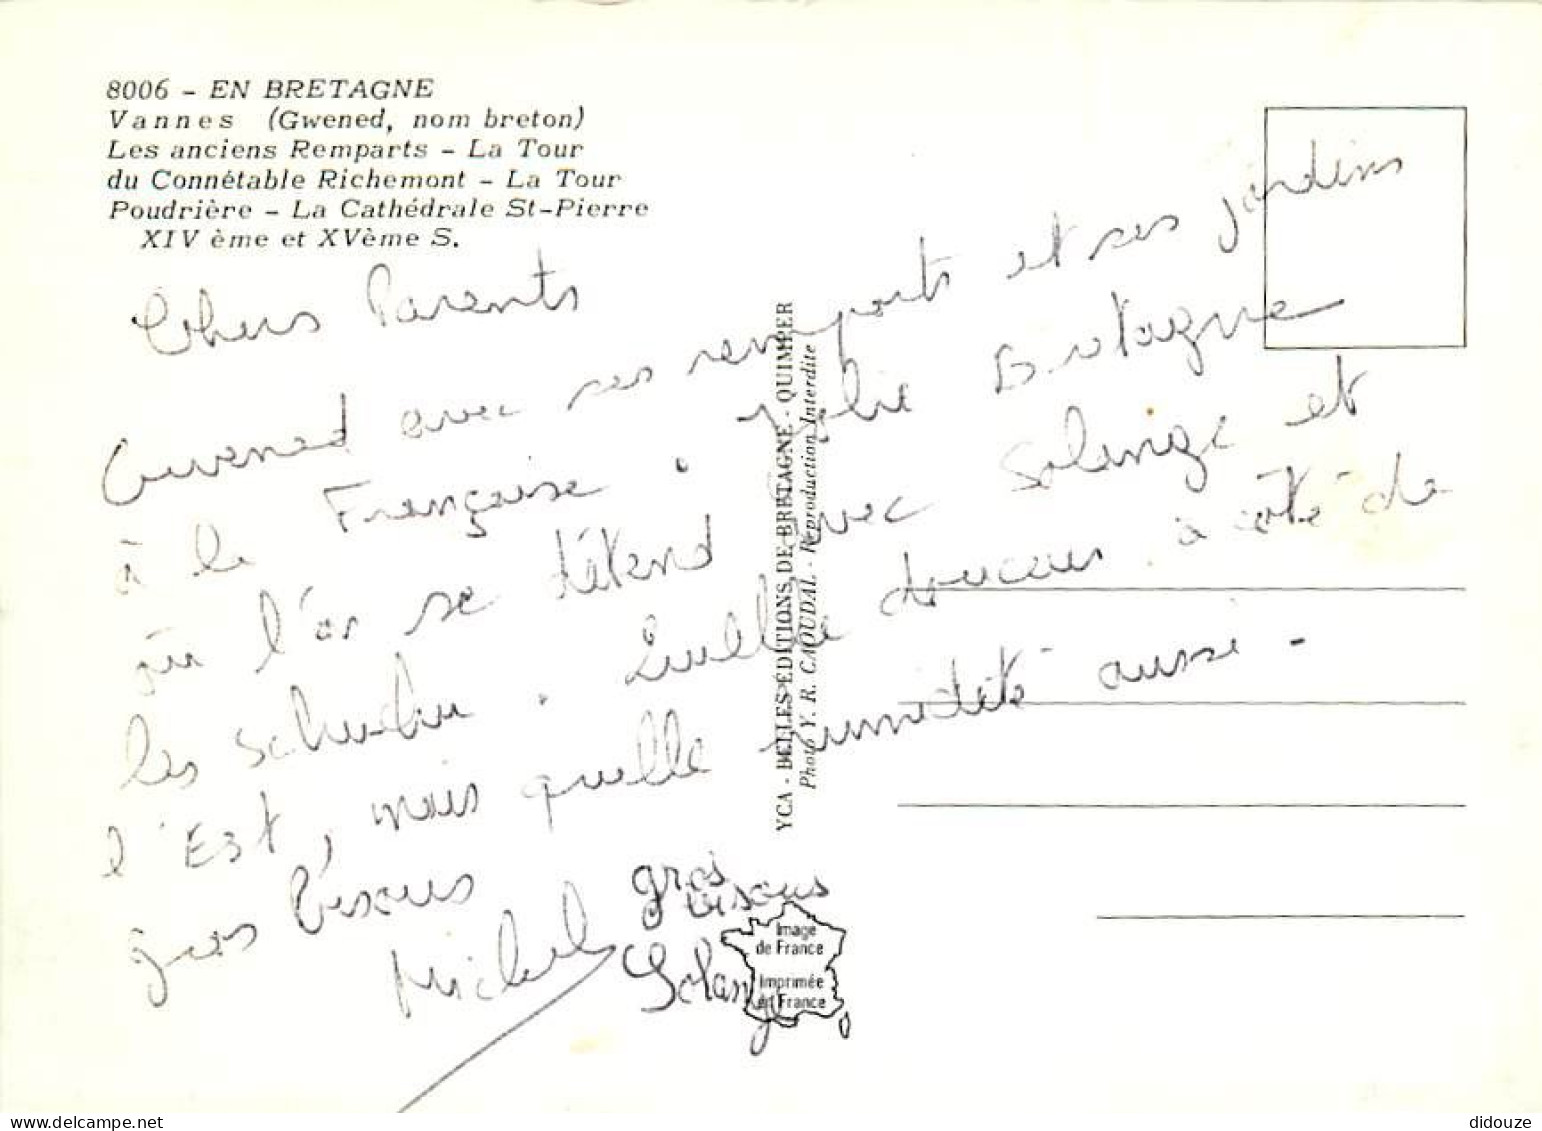 8006 - EN BRETAGNE
Vannes (Gwened, nom breton)
Les anciens Remparts - La Tour
du Connétable Richemont - La Tour
Poudrière - La Cathédrale St-Pierre
XIV ème et XVème S.
Chers Parents
Gwened avec ses remparts et ses jardins
à la Française. Jolie Bretagne
où l'on se détend avec Solange et
les . Quelle douceur à côté de
l'Est, mais quelle humidité aussi -
gros bisous
Michel
gros bisous
Solange
YCA - BELLES ÉDITIONS DE BRETAGNE - QUIMPER
Photo Y. R. CAOUDAL - Reproduction Interdite
Image
de France
Imprimée
en France
didouze